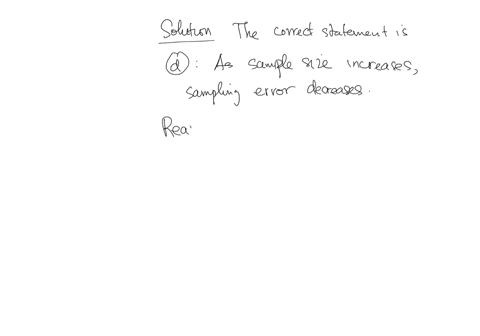 Solution The correct statement is
(d): As sample size increases,
sampling error decreases.
Rea